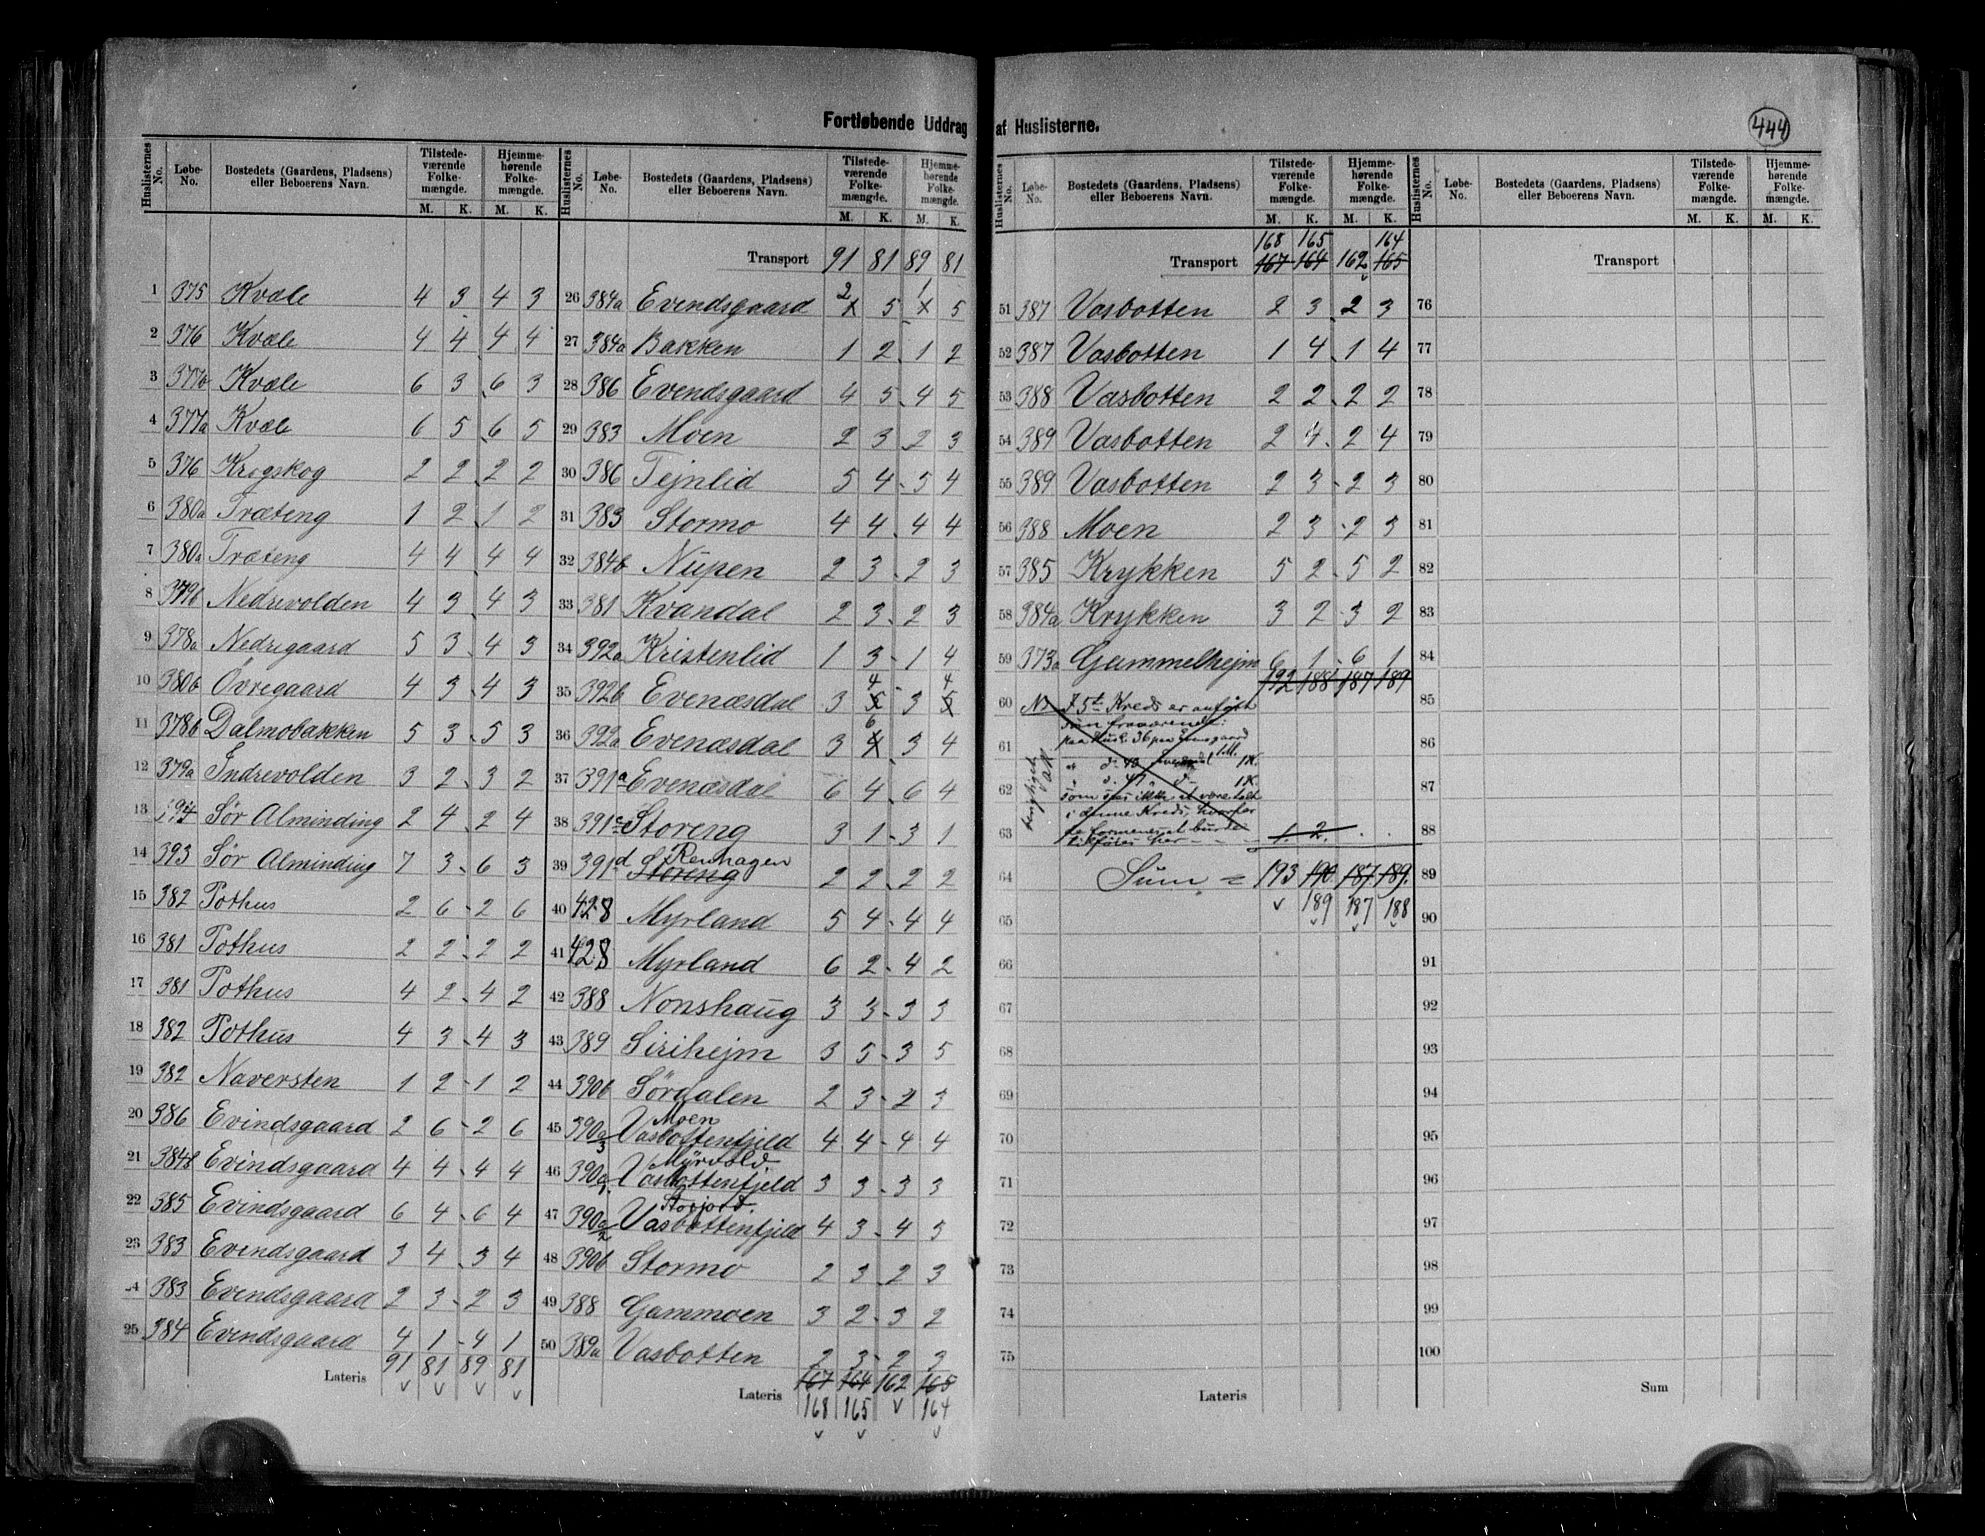 Fortløbende Uddrag af Huslisterne.
444
Huslisternes No. Løbe-No. Bostedets (Gaardens, Pladsens) eller Beboerens Navn. Tilstede-værende Folke-mængde. M. K. Hjemme-hørende Folke-mængde. M. K.
1 375 Kvæle 4 3 4 3
2 376 Kvæle 4 4 4 4
3 377b Kvæle 6 3 6 3
4 377a Kvæle 6 5 6 5
5 376 Krogskog 2 2 2 2
6 380a Træteng 1 2 1 2
7 380a Træteng 4 4 4 4
8 379b Nedrevolden 4 3 4 3
9 378a Nedregaard 5 3 4 3
10 380b Övregaard 4 3 4 3
11 378b Dalmobakken 5 3 5 3
12 379a Indrevolden 3 2 3 2
13 394 Sör Alminding 2 4 2 4
14 393 Sör Alminding 7 3 6 3
15 382 Pothus 2 6 2 6
16 381 Pothus 2 2 2 2
17 381 Pothus 4 2 4 2
18 382 Pothus 4 3 4 3
19 382 Naversten 1 2 1 2
20 386 Evindsgaard 2 6 2 6
21 384b Evindsgaard 4 4 4 4
22 385 Evindsgaard 6 4 6 4
23 383 Evindsgaard 3 4 3 4
24 383 Evendsgaard 2 3 2 3
25 384 Evendsgaard 4 1 4 1
Lateris 91 81 89 81
Huslisternes No. Løbe-No. Bostedets (Gaardens, Pladsens) eller Beboerens Navn. Tilstede-værende Folke-mængde. M. K. Hjemme-hørende Folke-mængde. M. K.
Transport 91 81 89 81
26 384a Evendsgaard 2 5 1 5
27 384a Bakken 1 2 1 2
28 386 Evendsgaard 4 5 4 5
29 383 Moen 2 3 2 3
30 386 Tejnlid 5 4 5 4
31 383 Stormo 4 4 4 4
32 384b Nupen 2 3 2 3
33 381 Kvandal 2 3 2 3
34 392a Kristenlid 1 3 1 4
35 392b Evenæsdal 3 4 5 3 4 5
36 392a Evenæsdal 3 6 4 3 4
37 391a Evenæsdal 6 4 6 4
38 391c Storeng 3 1 3 1
39 391d Renhagen Storeng 2 2 2 2
40 428 Myrland 5 4 4 4
41 428 Myrland 6 2 4 2
42 388 Nonshaug 3 3 3 3
43 389 Sirihejm 3 5 3 5
44 390b Sördalen 2 3 2 3
45 390a3 Moen Vasbottenfjeld 4 4 4 4
46 390a1 Myrvold Vasbottenfjeld 3 3 3 3
47 390a2 Storjord. Vasbottenfjeld 4 3 4 3
48 390b Stormo 2 3 2 3
49 388 Gammoen 3 2 3 2
50 389a Vasbotten 2 3 2 3
Lateris 167 164 162 165
168 165 164
Huslisternes No. Løbe-No. Bostedets (Gaardens, Pladsens) eller Beboerens Navn. Tilstede-værende Folke-mængde. M. K. Hjemme-hørende Folke-mængde. M. K.
168 165 164
Transport 167 164 162 165
51 387 Vasbotten 2 3 2 3
52 387 Vasbotten 1 4 1 4
53 388 Vasbotten 2 2 2 2
54 389 Vasbotten 2 4 2 4
55 389 Vasbotten 2 3 2 3
56 388 Moen 2 3 2 3
57 385 Krykken 5 2 5 2
58 384a Krykken 3 2 3 2
59 373a Gammelhejm 6 1 6 1
192 188 187 189
60 I 5te Kreds er anført
som fraværende:
61 paa Husl. 36
1K.
d. 47 d. 1K
62 som ikke at være talt
i denne Kreds, hvorfor
63 formenes at burde 1 2
tilføies her
64 Sum = 193 190 187 189
65 189 187 188
66
67
68
69
70
71
72
73
74
75
Lateris
Huslisternes No. Løbe-No. Bostedets (Gaardens, Pladsens) eller Beboerens Navn. Tilstede-værende Folke-mængde. M. K. Hjemme-hørende Folke-mængde. M. K.
Transport
76
77
78
79
80
81
82
83
84
85
86
87
88
89
90
91
92
93
94
95
96
97
98
99
100
Sum